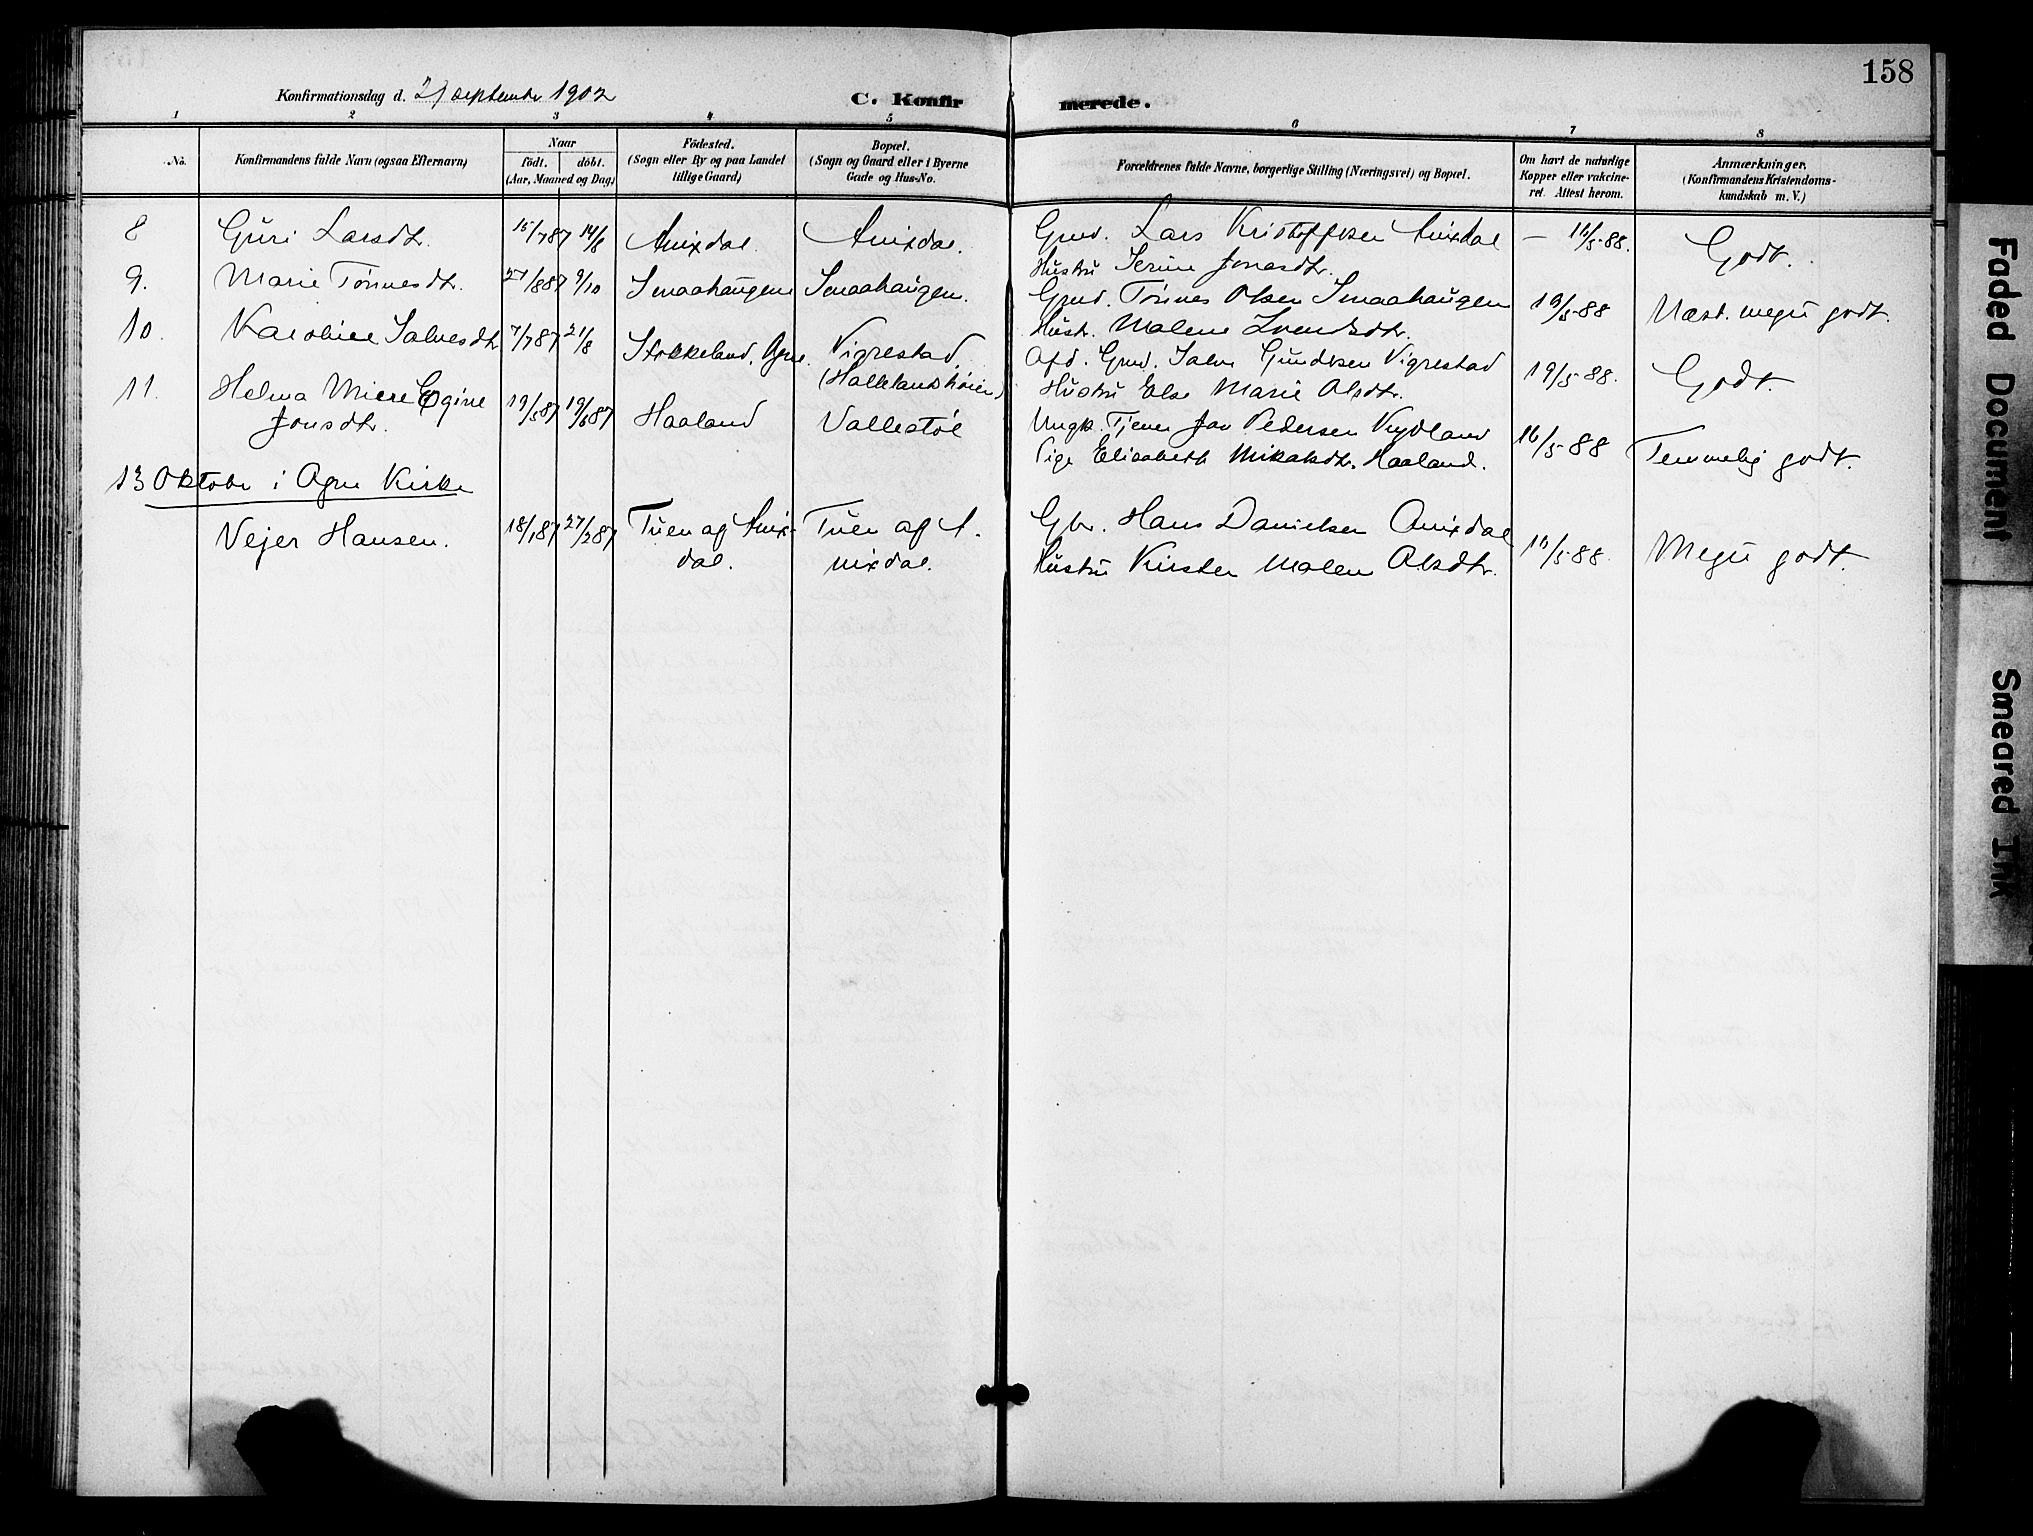 158
Konfirmationsdag d. 21 september 1902
C. Konfirmerede.
1 2 3 4 5 6 7 8
No.
Konfirmandens fulde Navn (ogsaa Efternavn)
Naar
født. döbt.
(Aar, Maaned og Dag)
Födested.
(Sogn eller By og paa Landet
tillige Gaard)
Bopæl.
(Sogn og Gaard eller i Byerne
Gade og Hus-No.
Forældrenes fulde Navne, borgerlige Stilling (Næringsvei) og Bopæl.
Om havt de naturlige
Kopper eller vakcine-
ret. Attest herom.
Anmærkninger.
(Konfirmandens Kristendoms-
kundskab m. V.)
8 Guri Larsdt. 15/7 87 14/8 Anixdal. Anixdal. Gmd. Lars Kristoffersen Anixdal — 16/5-88. Godt.
Hustru Serine Jonasdtr.
9. Marie Tønnesdtr. 27/8 87 9/10 Smaahaugen Smaahaugen. Gmd. Tønnes Olsen Smaahaugen 19/5-88 Næst. meget godt.
Hustr. Malene Svendsdtr.
10. Karoline Salvesdtr 7/7 87 21/8 Stokkeland, Ogne. Vigrestad Afd. Gmd. Salve Gundersen Vigrestad 19/5-88. Godt.
Hustru Else Marie Olsdtr.
11. Helma Mirre Egine 19/5 87 19/6 87 Haaland Vallestøl Ungk. Tjener Jon Pedersen 16/5-88 Temmelig godt.
Jonsdtr.
Pige Elisabeth Mikalsdtr. Haaland.
13 Oktober i Ogne Kirke
Vejer Hansen. 18/1 87 27/2 87 Tuen af Anix- Tuen af A- Gbr. Hans Danielsen Anixdal 16/5-88. Meget godt.
dal. nixdal. Hustru Kirsten Malene Olsdtr.
Faded Document
Smeared Ink